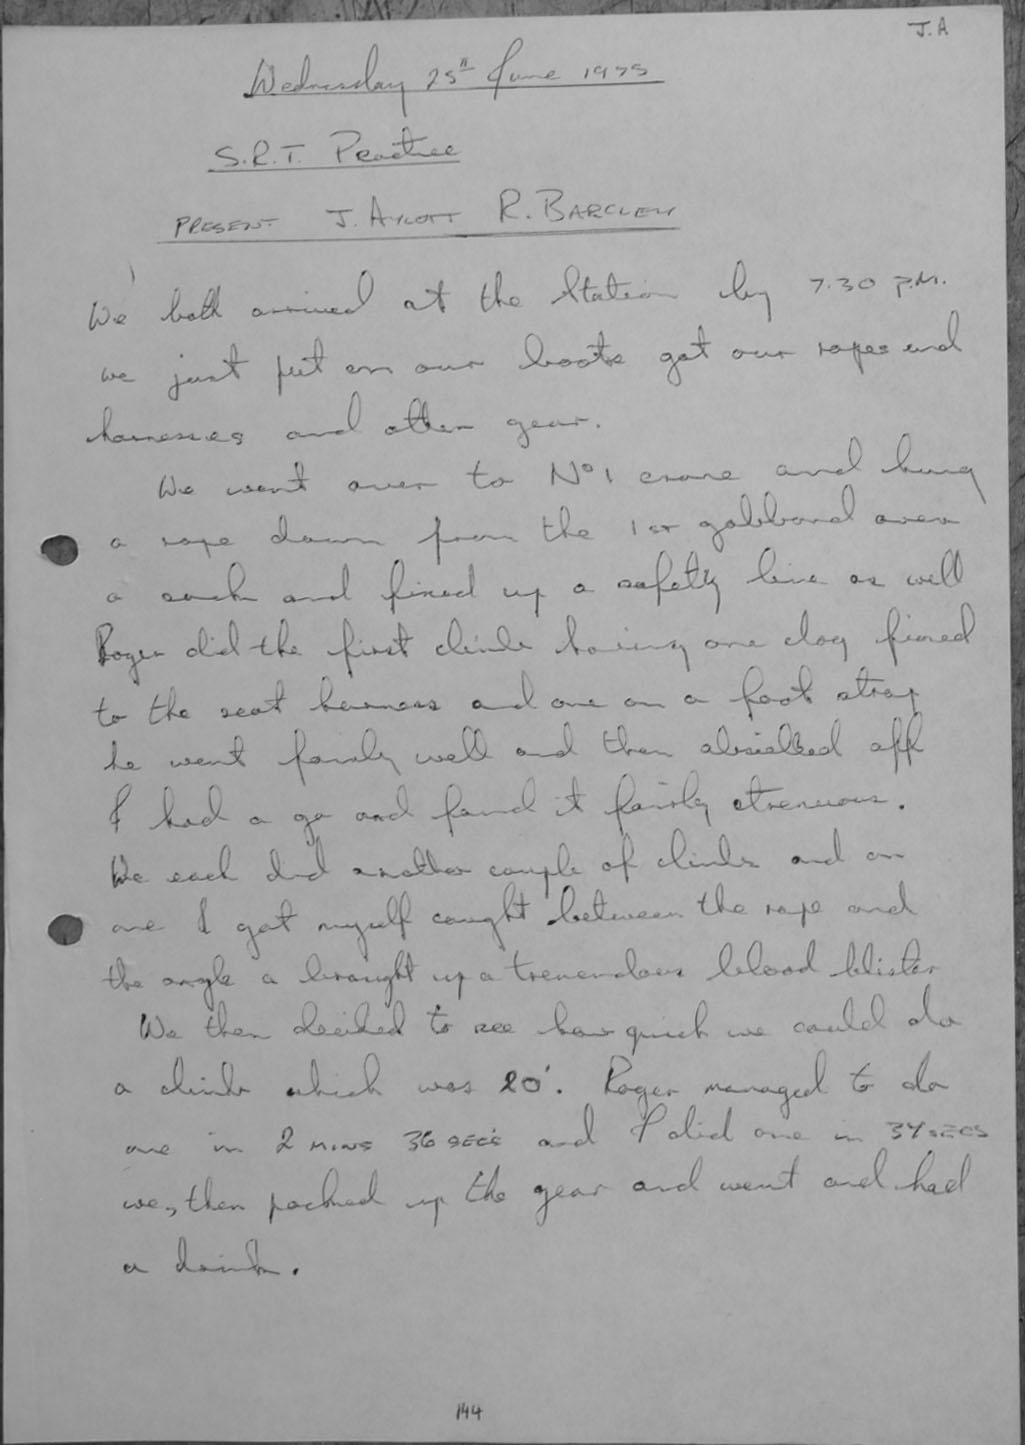 J.A
Wednesday 25th June 1975
S.R.T. Practice
PRESENT J. AYLOTT R. BARCLEY
We both arrived at the Station by 7.30 P.M.
we just put on our boots got our ropes and
harnesses and other gear.
We went over to No 1 crane and hung
a rope down from the 1st gabbard over
a sack and fixed up a safety line as well
Roger did the first climb having one clog fixed
to the seat harness and one on a foot strap
he went fairly well and then absielled off
I had a go and found it fairly strenuous.
We each did another couple of climbs and on
one I got myself caught between the rope and
the angle a brought up a tremendous blood blister
We then decided to see how quick we could do
a climb which was 20'. Roger managed to do
one in 2 MINS 36 SECS and I did one in 34 SECS
we, then packed up the gear and went and had
a drink.
144